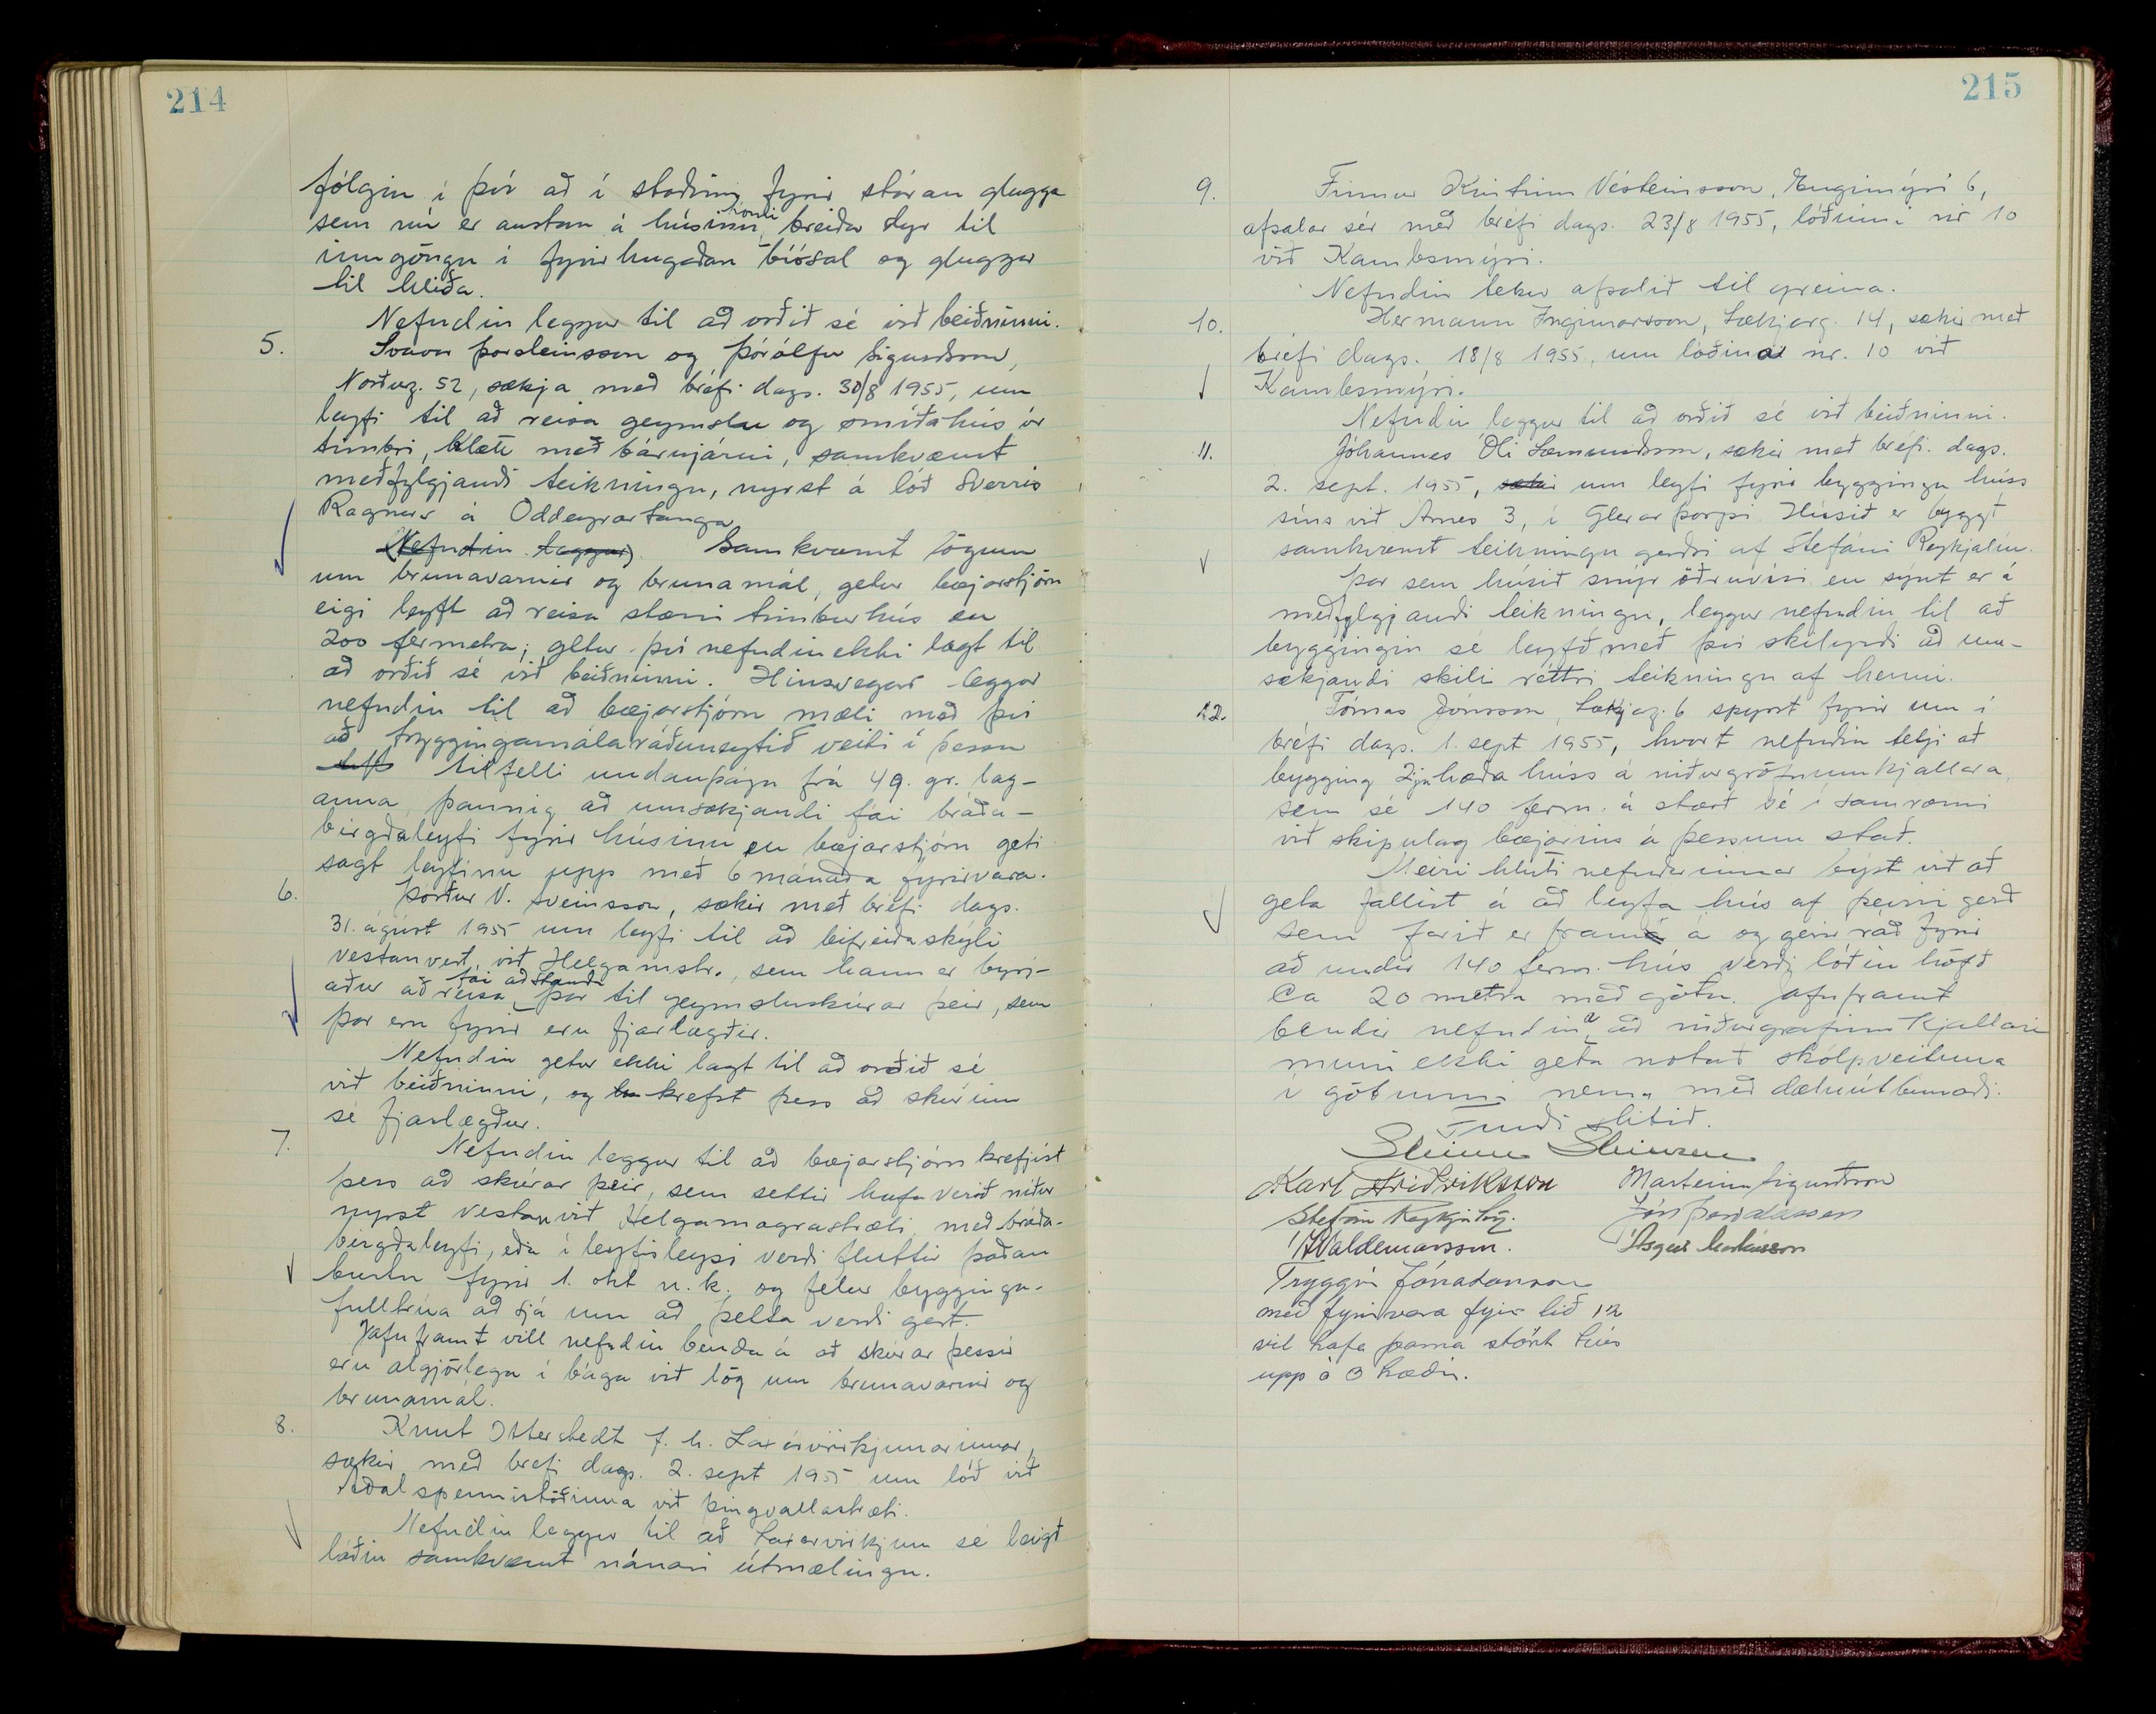 214
fólgin í því að í staðinn fyrir stóran glugga
sem nú er austan á húsinu, komi breiðar dyr til
inngöngu í fyrirhugaðan bíósal og gluggar
til hliða.
Nefndin leggur til að orðið sé við beiðninni.
5. Svavar Þorsteinsson og Þórólfur Sigurðsson,
Norðurg. 52, sækja með bréfi dags. 30/8 1955, um
leyfi til að reisa geymslu og smíðahús úr
timbri, klætt með bárujárni, samkvæmt
meðfylgjandi teikningu, nyrst á lóð Sverris
Ragnars á Oddeyrartanga.
(Nefndin leggur) Samkvæmt lögum
um brunavarnir og brunamál, getur bæjarstjórn
eigi leyft að reisa stærri timburhús en
200 fermetra; getur því nefndin ekki lagt til
að orðið sé við beiðninni. Hinsvegar leggur
nefndin til að bæjarstjórn mæli með því
að tryggingamálaráðuneytið veiti í þessu
tilfelli undanþágu frá 49. gr. lag-
anna, þannig að umsækjandi fái bráða-
birgðaleyfi fyrir húsinu en bæjarstjórn geti
sagt leyfinu upp með 6 mánaða fyrirvara.
6. Þórður V. Sveinsson, sækir með bréfi dags.
31. ágúst 1955 um leyfi til að bifreiðaskýli
vestanvert við Helgamstr., sem hann er byrj-
aður að reisa, fái að standa þar til geymsluskúrar þeir, sem
þar eru fyrir eru fjarlægðir.
Nefndin getur ekki lagt til að orðið sé
við beiðninni, og krefst þess að skúrinn
sé fjarlægður.
7. Nefndin leggur til að bæjarstjórn krefjist
þess að skúrar þeir, sem settir hafa verið niður
nyrst vestan við Helgamagrastræti, með bráða-
birgðaleyfi, eða í leyfisleysi verði fluttir þaðan
burtu fyrir 1. okt n.k. og felur bygginga-
fulltrúa að sjá um að þetta verði gert.
Jafnframt vill nefndin benda á að skúrar þessir
eru algjörlega í bága við lög um brunavarnir og
brunamál.
8. Knut Otterstedt f. h. Laxárvirkjunarinnar,
sækir með bréfi dags. 2. sept 1955 um lóð við
Aðalspennistöðina við Þingvallastræti.
Nefndin leggur til að Laxárvirkjun sé leigð
lóðin samkvæmt nánari útmælingu.
215
9. Finnur Kristinn Vésteinsson, Engimýri 6,
afsalar sér með bréfi dags. 23/8 1955, lóðinni nr 10
við Kambsmýri.
Nefndin tekur afsalið til greina.
10. Hermann Ingimarsson, Lækjarg. 14, sækir með
bréfi dags. 18/8 1955, um lóðina nr. 10 við
Kambsmýri.
Nefndin leggur til að orðið sé við beiðninni.
11. Jóhannes Óli Sæmundsson, sækir með bréfi dags.
2. sept. 1955, sækir um leyfi fyrir byggingu húss
síns við Árnes 3, í Glerárþorpi. Húsið er byggt
samkvæmt teikningu gerðri af Stefáni Reykjalín.
Þar sem húsið snýr öðruvísi en sýnt er á
meðfylgjandi teikningu, leggur nefndin til að
byggingin sé leyfð með því skilyrði að um-
sækjandi skili réttri teikningu af henni.
12. Tómas Jónsson, Lækjarg. 6 spyrst fyrir um í
bréfi dags. 1. sept 1955, hvort nefndin telji að
bygging 2ja hæða húss á niðurgröfnum kjallara,
sem sé 140 ferm. á stærð sé í samræmi
við skipulag bæjarins á þessum stað.
Meiri hluti nefndarinnar býst við að
geta fallist á að leyfa hús af þeirri gerð
sem farið er fram á og gerir ráð fyrir
að undir 140 ferm. hús verði lóðin höfð
Ca 20 metra með götu. Jafnframt
bendir nefndin á að niðurgrafinn kjallari
muni ekki geta notað skólpveituna
í götunni nema með dæluútbúnaði.
Fundi slitið.
Steinn Steinsen
Karl Friðriksson Marteinn Sigurðsson
Stefán Reykjalín. Jón Þorvaldsson
Valdemarsson. Ásgeir Markússon
Tryggvi Jónatansson
með fyrirvara fyrir lið 12
vil hafa þarna stórt hús
upp á 3 hæðir.